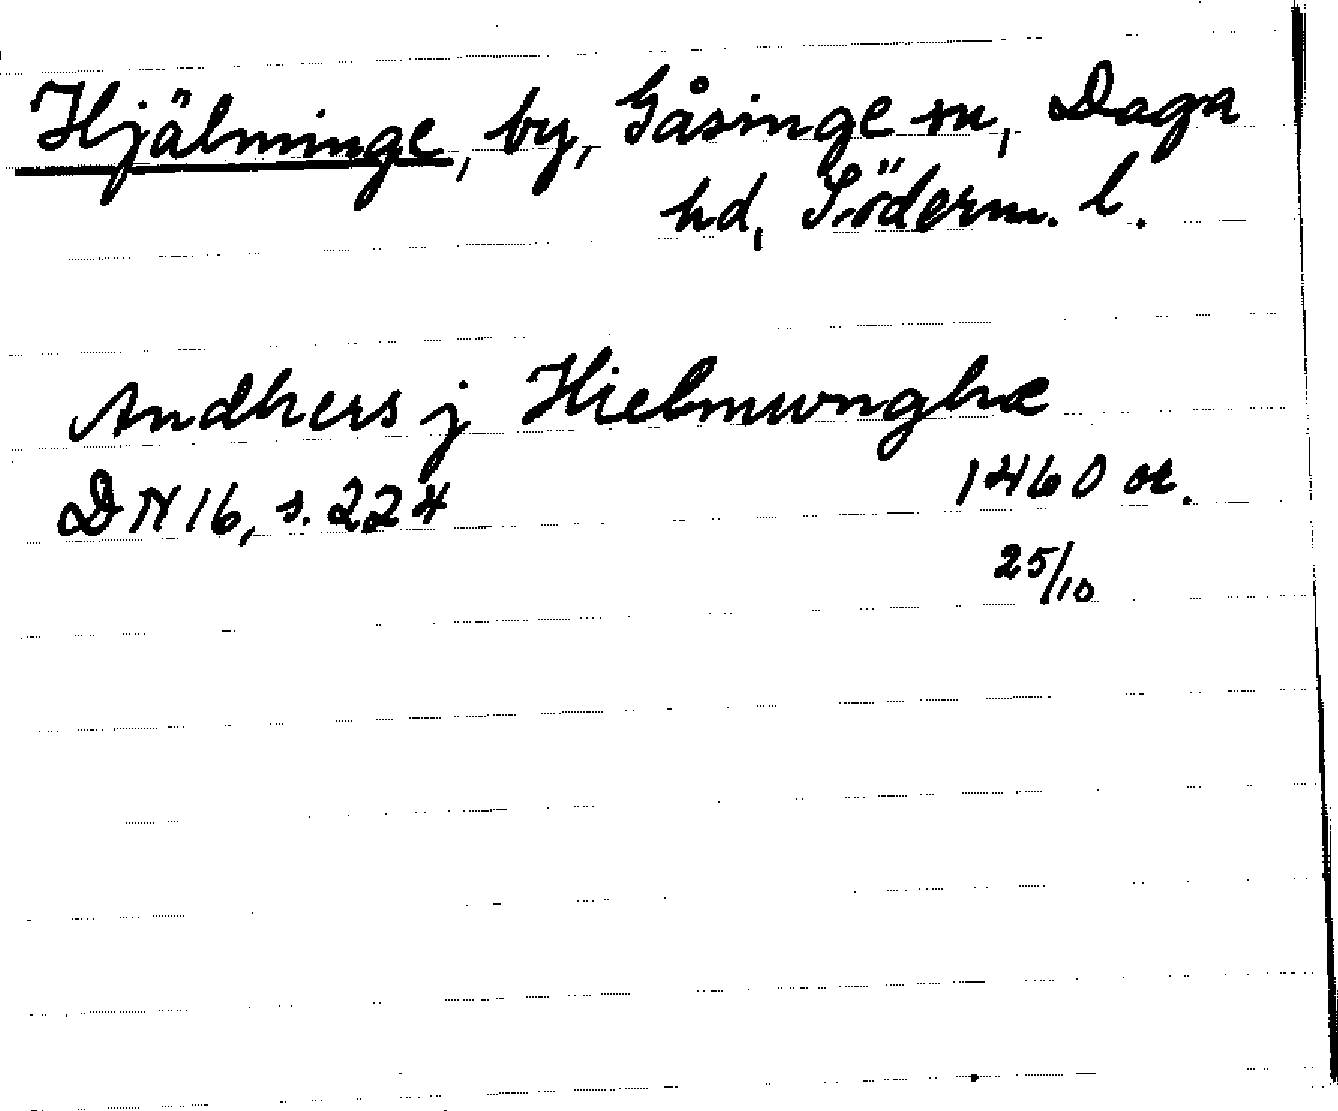 Hjälminge, by, Gåsinge sn, Daga
hd, Söderm. l.
Andhers j Hielmunghæ
DN 16, s. 224 1460 or.
25/10